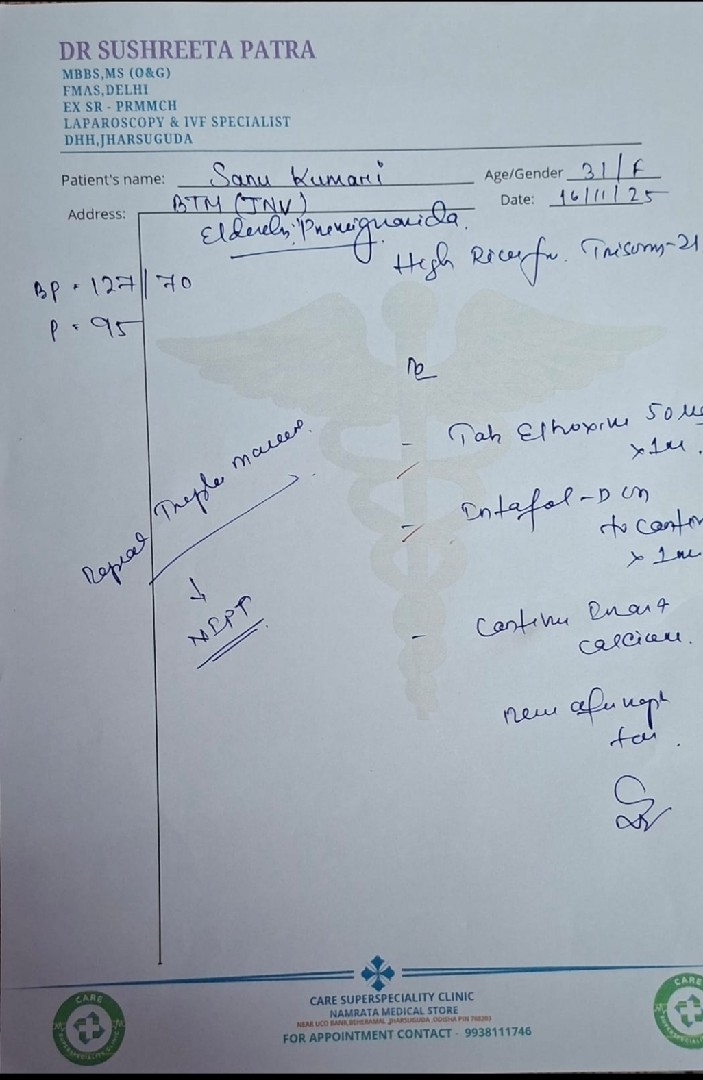 DR SUSHREETA PATRA
MBBS,MS (O&G)
FMAS,DELHI
EX SR - PRMMCH
LAPAROSCOPY & IVF SPECIALIST
DHH,JHARSUGUDA
Patient's name: Sanu Kumari
Age/Gender 31/F
Address: BTM (JNV)
Date: 16/11/25
Elderly Primigravida
High Risk for Trisomy-21
BP - 127/70
P - 95
Rx
- Tab Eltroxin 50
x 1m
- Intafol-D
to
x 1m
- Continue
calcium.
Repeat Triple marker
↓
NIPT
CARE
CARE SUPERSPECIALITY CLINIC
NAMRATA MEDICAL STORE
NEAR UCO BANK,BEHERAMAL, JHARSUGUDA ODISHA PIN
FOR APPOINTMENT CONTACT - 9938111746